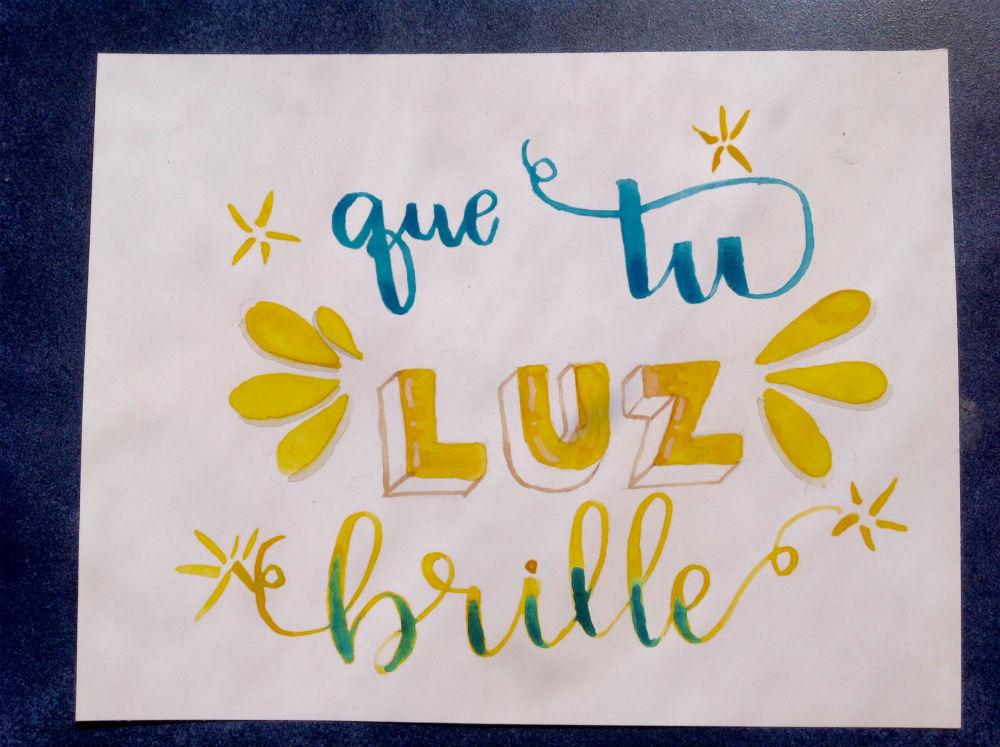 que tu
LUZ
brille